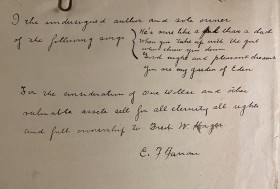 I the undersigned author and sole owner
of the following songs
He's more like a pal than a dad
When you take up with the girl
went down you down
Good night and pleasant dreams
You are my garden of Eden
For the consideration of One Dollar and other
valuable assets sell for all eternity all rights
and full ownership to Fred W Hager
E. F.